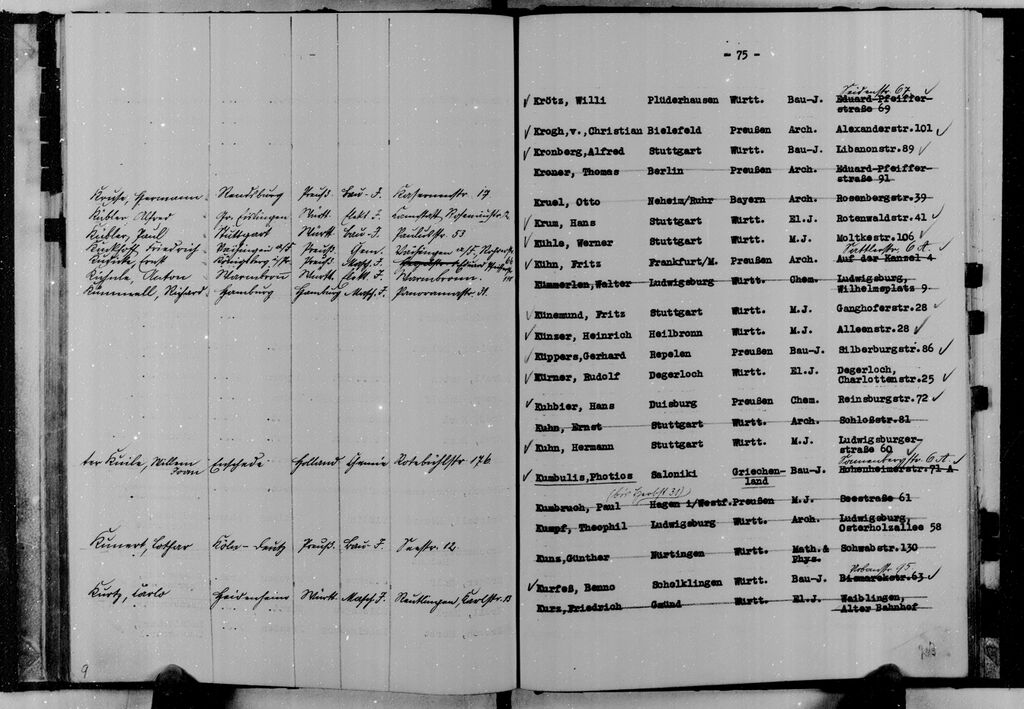 Kruse, Hermann Rendsburg Preuß. Bau-I. Kasernenstr. 17
Kübler Alfred Gr. Eislingen Württ. Elekt. I.
Kübler, Paul Stuttgart Württ. Bau-I. Paulusstr. 53
Friedrich Preuß.
Ernst Preuß. Masch. I.
Anton Warmbronn Württ. Elekt. I. Warmbronn
Kümmell, Richard Hamburg Hamburg Masch. I. Panoramastr. 31.
ter Kuile, Willem Enschede Holland Chemie Rotebühlstr. 176
Kunert, Lothar Köln-Deutz Preuß. Bau-I. Seestr. 12
Kurtz, Carlo Heidenheim Württ. Masch. I. Reutlingen, Karlstr. 13
9
- 75 -
Seidenstr. 67
Krötz, Willi Plüderhausen Württ. Bau-J. Eduard-Pfeiffer-
straße 69
Krogh,v.,Christian Bielefeld Preußen Arch. Alexanderstr.101
Kronberg,Alfred Stuttgart Württ. Bau-J. Libanonstr.89
Kroner, Thomas Berlin Preußen Arch. Eduard-Pfeiffer-
straße 91
Kruel, Otto Neheim/Ruhr Bayern Arch. Rosenbergstr.39
Krum, Hans Stuttgart Württ. El.J. Rotenwaldstr.41
Kühle, Werner Stuttgart Württ. M.J. Moltkestr.106
Kühn, Fritz Frankfurt/M. Preußen Arch. Auf der Kanzel 4
Kümmerlen,Walter Ludwigsburg Württ. Chem. Ludwigsburg,
Wilhelmsplatz 9
Künemund, Fritz Stuttgart Württ. M.J. Ganghoferstr.28
Künzer, Heinrich Heilbronn Württ. M.J. Alleenstr.28
Küppers,Gerhard Repelen Preußen Bau-J. Silberburgstr.86
Kürner, Rudolf Degerloch Württ. El.J. Degerloch,
Charlottenstr.25
Kuhbier, Hans Duisburg Preußen Chem. Reinsburgstr.72
Kuhn, Ernst Stuttgart Württ. Arch. Schloßstr.81
Kuhn, Hermann Stuttgart Württ. M.J. Ludwigsburger-
straße 60
Kumbulis,Photios Saloniki Griechen- Bau-J. Hohenheimerstr.71 A
land
(bis Herbst 31)
Kumbruch, Paul Hagen i/Westf. Preußen M.J. Seestraße 61
Kumpf, Theophil Ludwigsburg Württ. Arch. Ludwigsburg,
Osterholzallee 58
Kunz,Günther Nürtingen Württ. Math.& Schwabstr.130
Phys.
Urbanstr. 95.
Kurfeß, Benno Schelklingen Württ. Bau-J. Bismarckstr.63
Kurz,Friedrich Gmünd Württ. El.J. Waiblingen,
Alter Bahnhof